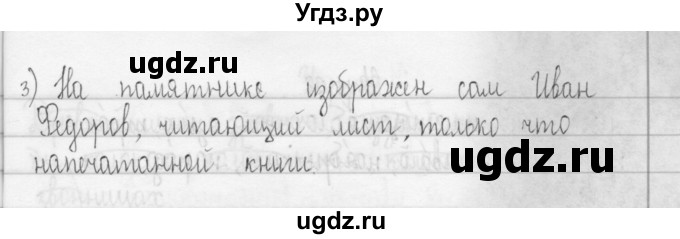 Угдз.ру
ugdz.ru
ugdz.ru
3) На памятнике изображен сам Иван
Федоров, читающий лист, только что
напечатанной книги.
ugdz.ru
ugdz.ru